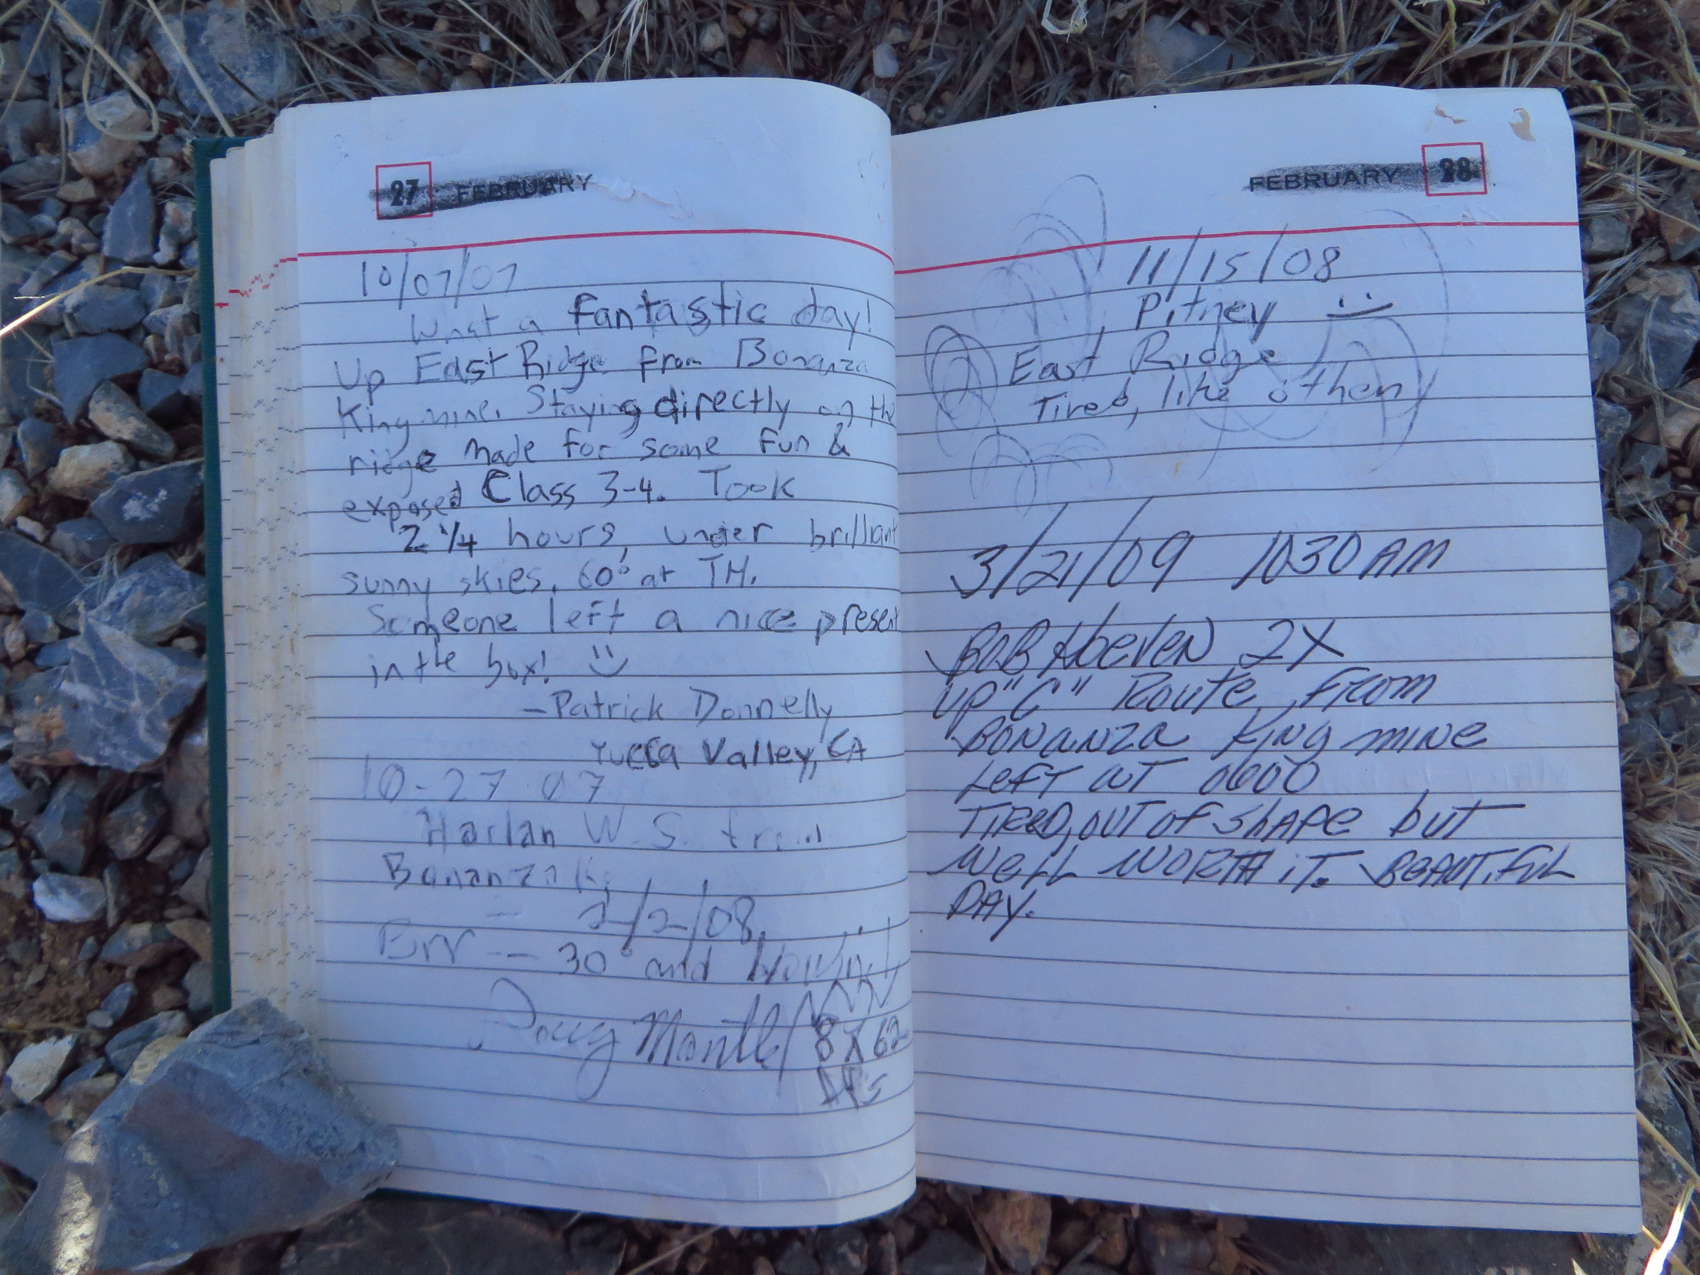 27 FEBRUARY
10/07/07
What a fantastic day!
Up East Ridge from Bonanza
King mine. Staying directly on the
ridge made for some fun &
exposed Class 3-4. Took
2 1/4 hours, under brilliant
sunny skies, 60° at TH.
Someone left a nice present
in the box!
- Patrick Donnelly
Yucca Valley, CA
10-27 07
Harlan W. S. from
Bonanza
2/2/08
Brr -- 30° and
Doug Mantle
8 X 62
FEBRUARY 28
11/15/08
Pitney
East Ridge
Tired, like other
3/21/09 1030 AM
BOB 2X
UP "C" Route, From
BONANZA King mine
LEFT AT 0600
TIRED, OUT OF SHAPE but
WELL WORTH iT. BEAUTIFUL
DAY.